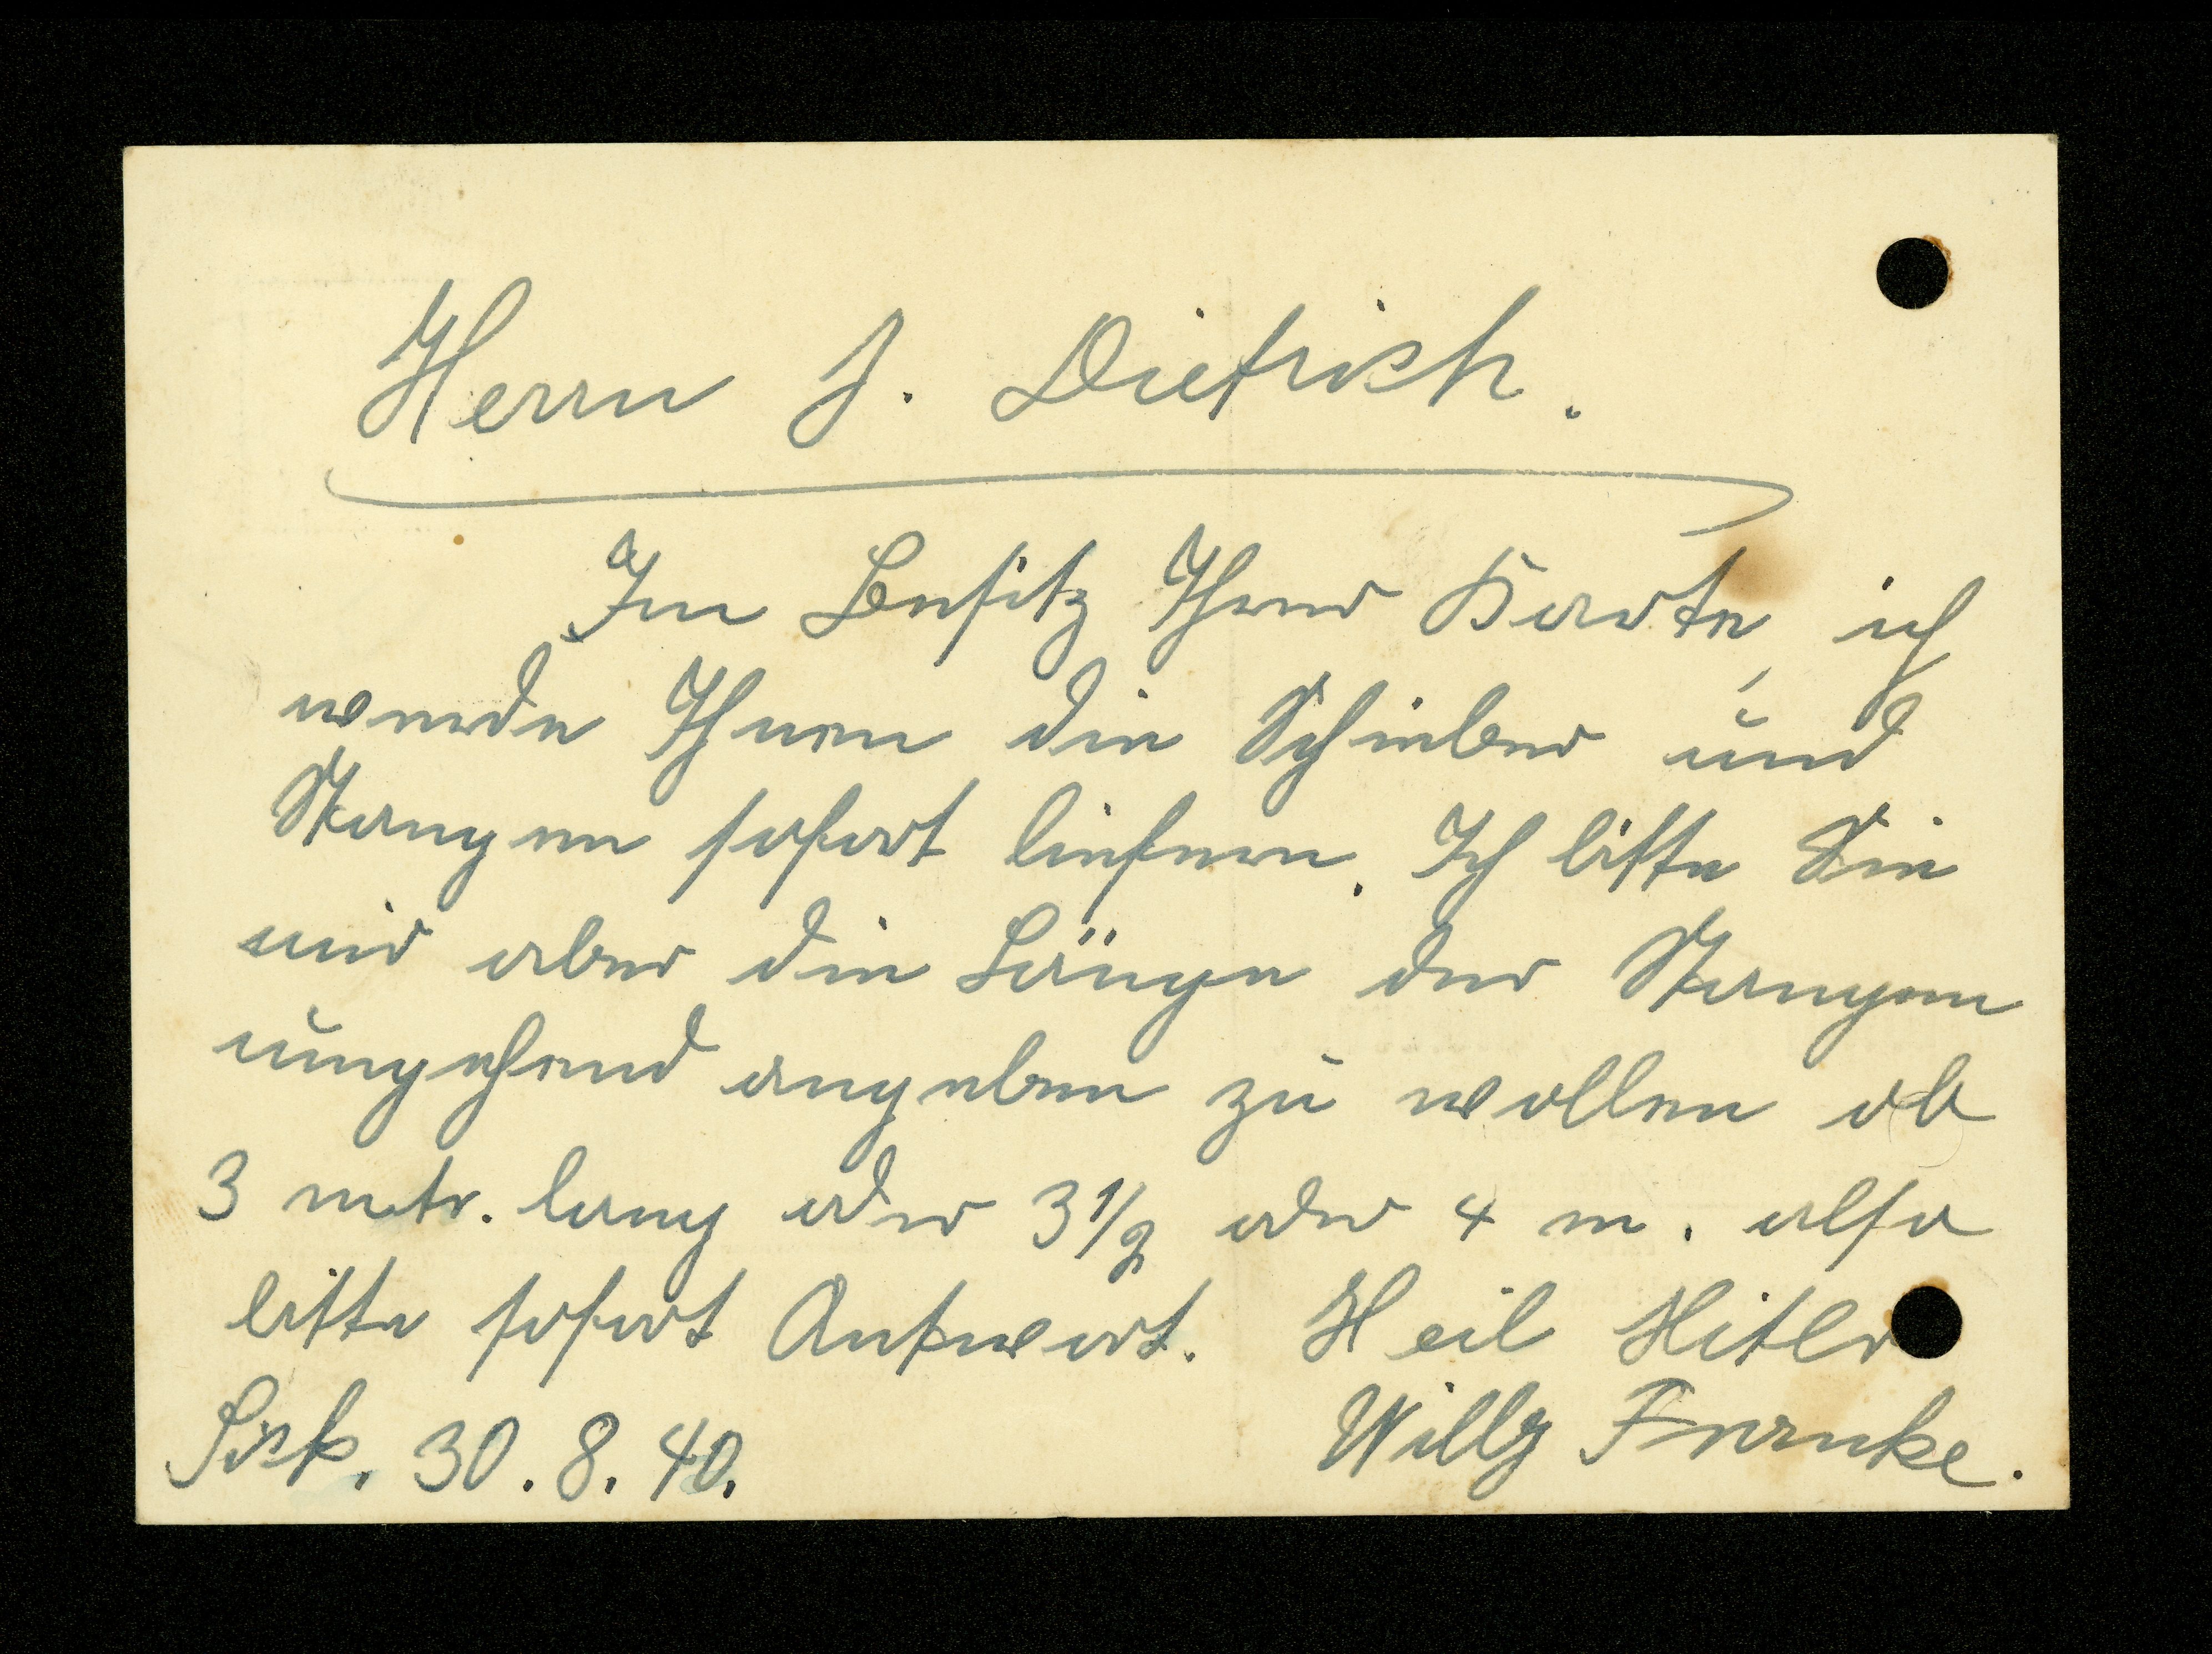 Herrn J. Dietrich.
Im Besitz Ihrer Karte, ich
werde Ihnen die Schieber und
Stangen sofort liefern. Ich bitte Sie
mir aber die Länge der Stangen
umgehend angeben zu wollen ob
3 mtr. lang oder 3 1/2 oder 4 m. also
bitte sofort Antwort. Heil Hitler
30.8.40. Willy